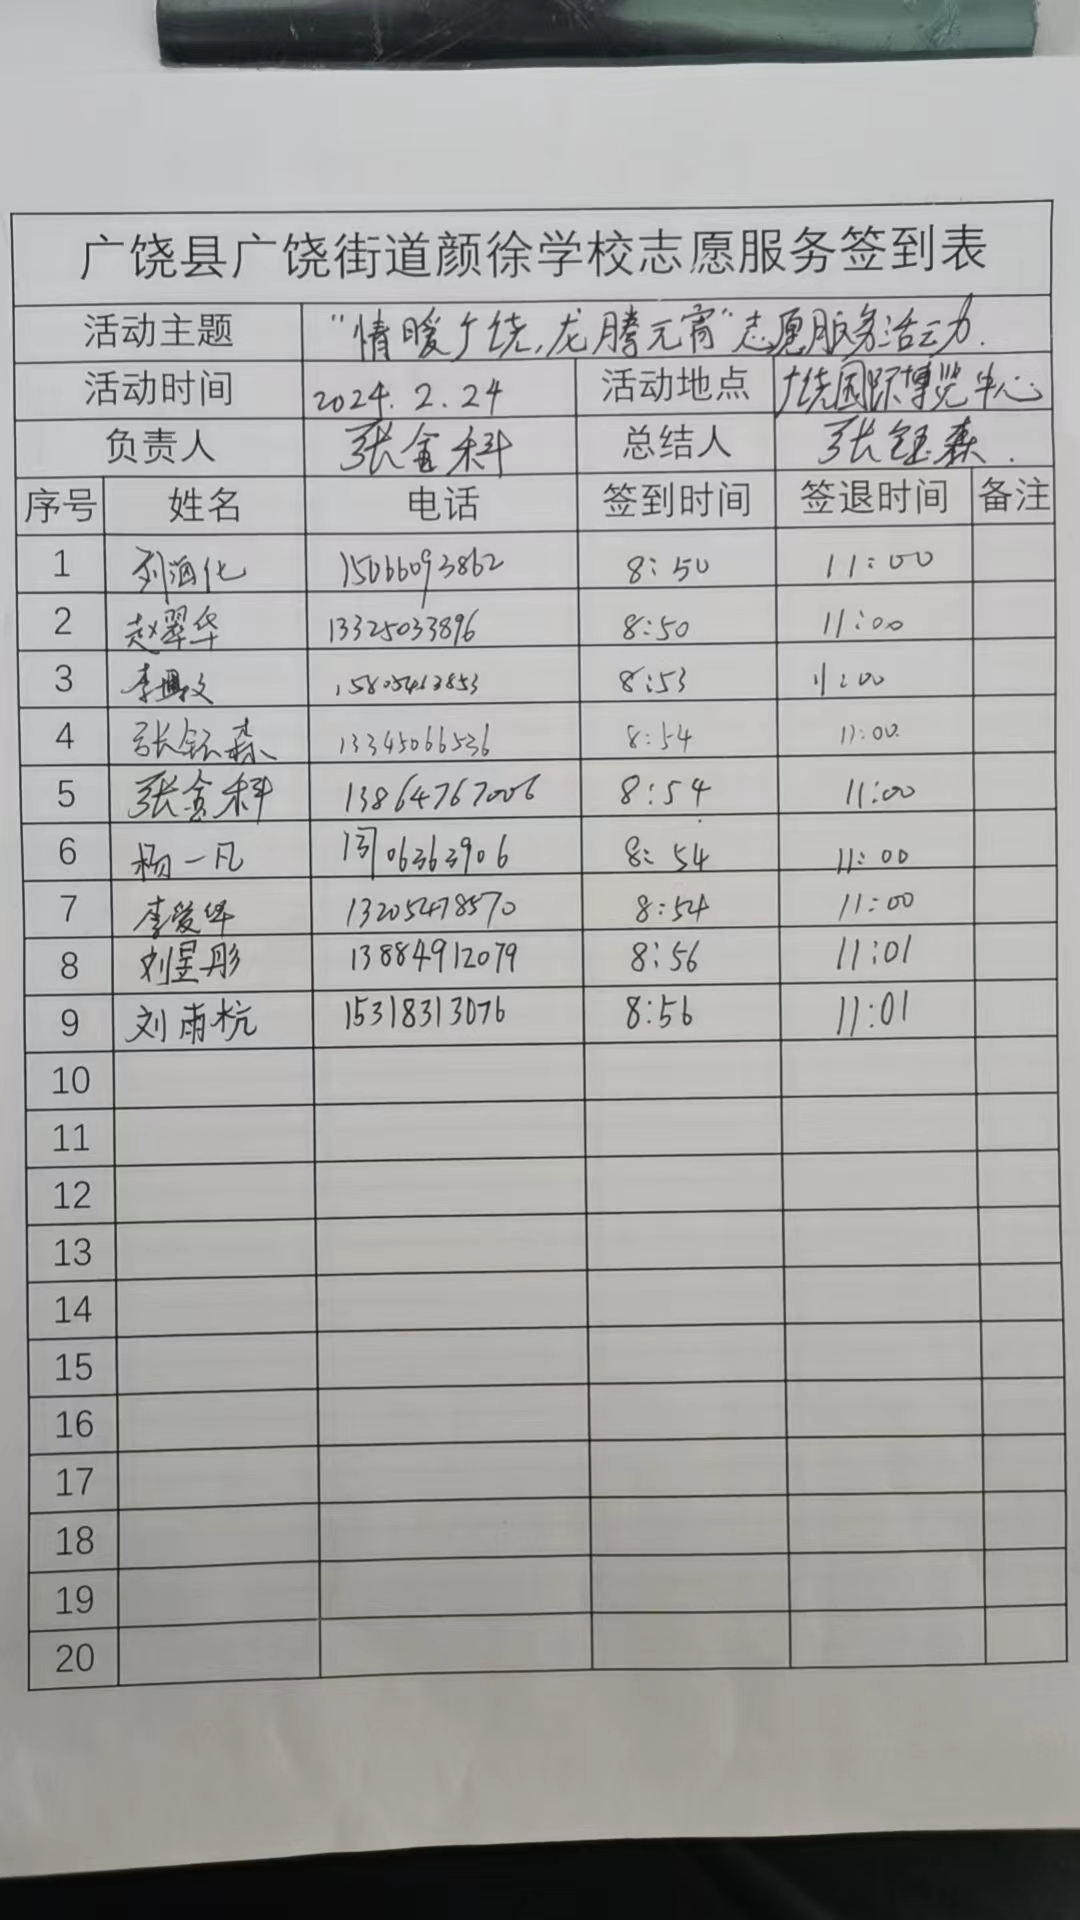 广饶县广饶街道颜徐学校志愿服务签到表
活动主题 "情暖广饶,龙腾元宵"志愿服务活动.
活动时间 2024.2.24 活动地点 广饶国际博览中心
负责人 张金科 总结人 张钰森.
序号 姓名 电话 签到时间 签退时间 备注
1 刘海化 15066093862 8:50 11:00
2 赵翠华 13325033896 8:50 11:00
3 15805463853 8:53 11:00
4 张钰森 13345066536 8:54 11:00
5 张金科 13864767006 8:54 11:00
6 杨一凡 8:54 11:00
7 李爱华 13205478570 8:54 11:00
8 刘星彤 13884912079 8:56 11:01
9 刘雨杭 15318313076 8:56 11:01
10
11
12
13
14
15
16
17
18
19
20